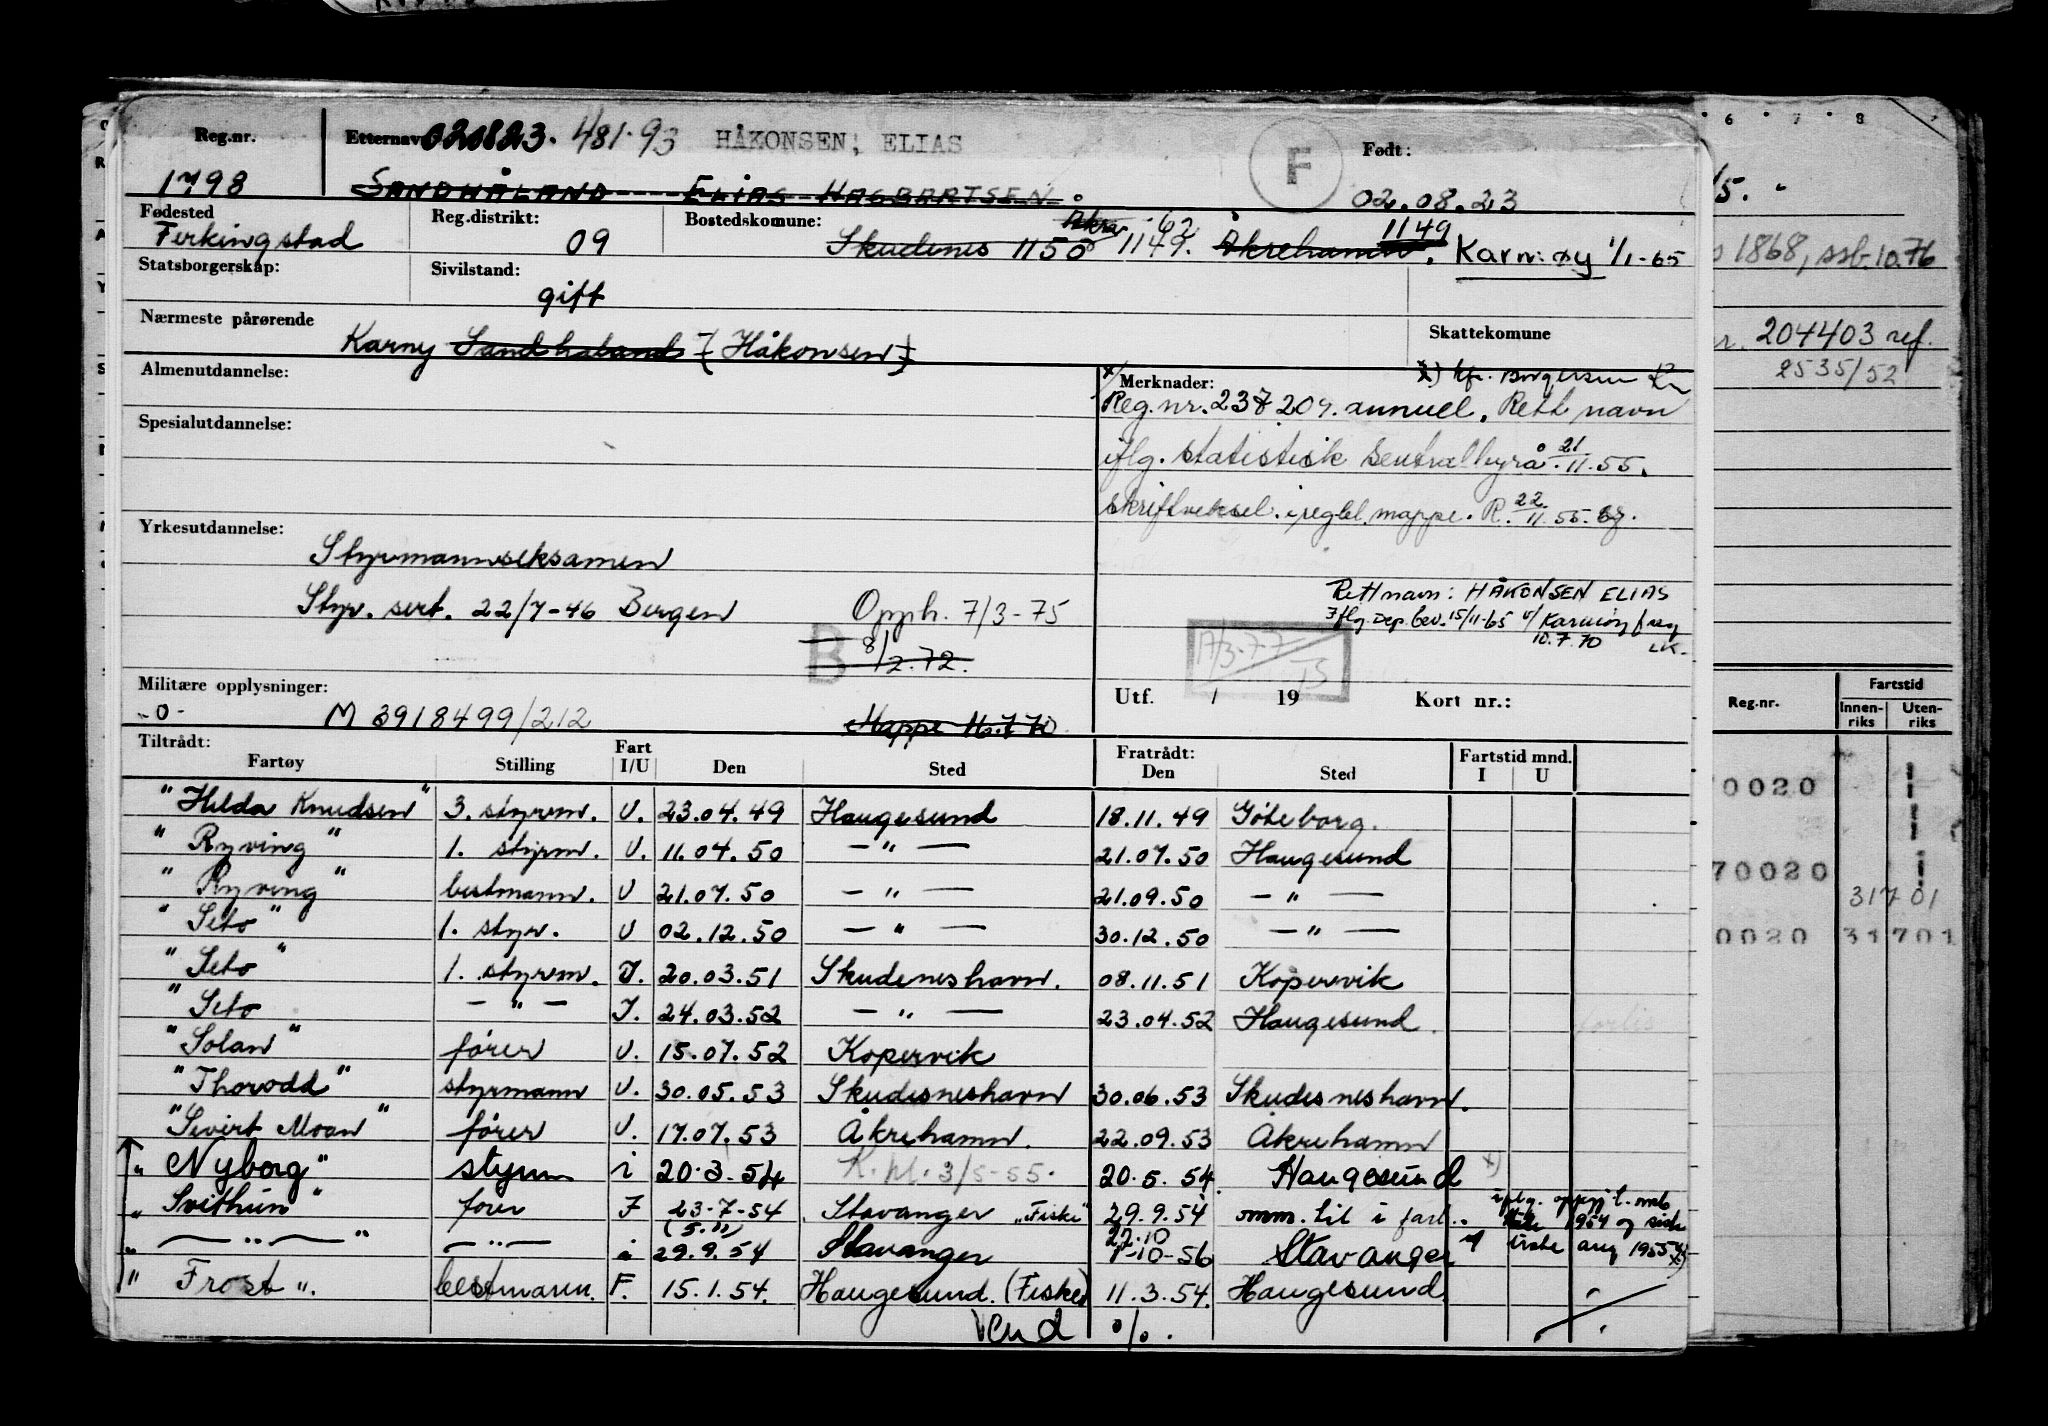 Reg.nr. Etternavn 020823. 481.93 HÅKONSEN, ELIAS F Født:
1798 SANDHÅLAND ELIAS HAGBARTSEN 02.08.23
Fødested Reg.distrikt: Bostedskomune: Åkra -62
Ferkingstad 09 Skudenes 1150 1149. Åkrehamn. 1149 Karmøy 1/1-65
Statsborgerskap: Sivilstand:
gift
Nærmeste pårørende Skattekomune
Karny Sandhåland (Håkonsen)
Almenutdannelse: x/ Merknader:
Reg.nr. 237 209. annuel. Rett navn
Spesialutdannelse:
iflg. statistisk sentralbyrå 21/11.55.
skriftveksel i reg.bl. mappe. R. 22/11.55.
Yrkesutdannelse:
Styrmannseksamen
Rett navn: HÅKONSEN ELIAS
Styr. sert. 22/7-46 Bergen Opph. 7/3-75
Iflg. Dep. bev. 15/11-65 Karmøy f.reg
10.7.70 LK.
B 8/2.72. 17/3-77 TS
Militære opplysninger: Utf. / 19 Kort nr.:
-0- M 3918499/212 Mappe
Tiltrådt: Fratrådt: Fartstid mnd.
Fartøy Stilling Fart I/U Den Sted Den Sted I U
"Hilda Knudsen" 3. styrm. U. 23.04.49 Haugesund 18.11.49 Göteborg.
"Ryving" 1. styrm. U. 11.04.50 — " — 21.07.50 Haugesund
"Ryving" bestmann. U 21.07.50 — " — 21.09.50 — " —
"Seto" 1. styr. U 02.12.50 — " — 30.12.50 — " —
"Seto" 1. styrm. I. 20.03.51 Skudeneshavn. 08.11.51 Kopervik
"Seto — " — I. 24.03.52 — " — 23.04.52 Haugesund
"Solan" fører U. 15.07.52 Kopervik
"Thorodd" styrmann U. 30.05.53 Skudesneshavn 30.06.53 Skudesneshavn.
"Sivert Moan" fører U. 17.07.53 Åkrehamn. 22.09.53 Åkrehamn
"Nyborg" styrm i 20.3.54 K. pl. 3/5-55. 20.5.54. Haugesund x)
"Svithun" fører F 23-7-54 Stavanger "Fiske" 29.9.54 omm. til i fart..
iflg. oppgj t. mnb
1954 og siste
(5.11) 22.10
" — " — " — " — i 29.9.54 Stavanger 1-10-56 Stavanger
aug 1955
"Frost". bestmann. F. 15.1.54. Haugesund. (Fiske) 11.3.54. Haugesund.
Vend %.
6 7 8
1868, ssb. 10.76
204403 ref.
2535/52
Reg.nr. Fartstid
Innenriks Utenriks
0020
70020 317 01
0020 31701